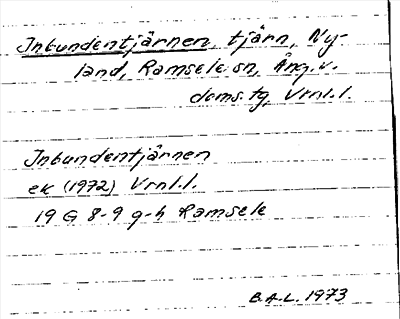 Inbundentjärnen, tjärn, Ny-
land, Ramsele sn, Ång. v.
doms.tg, Vrnl.l.
Inbundentjärnen
ek (1972) Vrnl.l.
19 G 8-9 g-h Ramsele
B.A.L. 1973